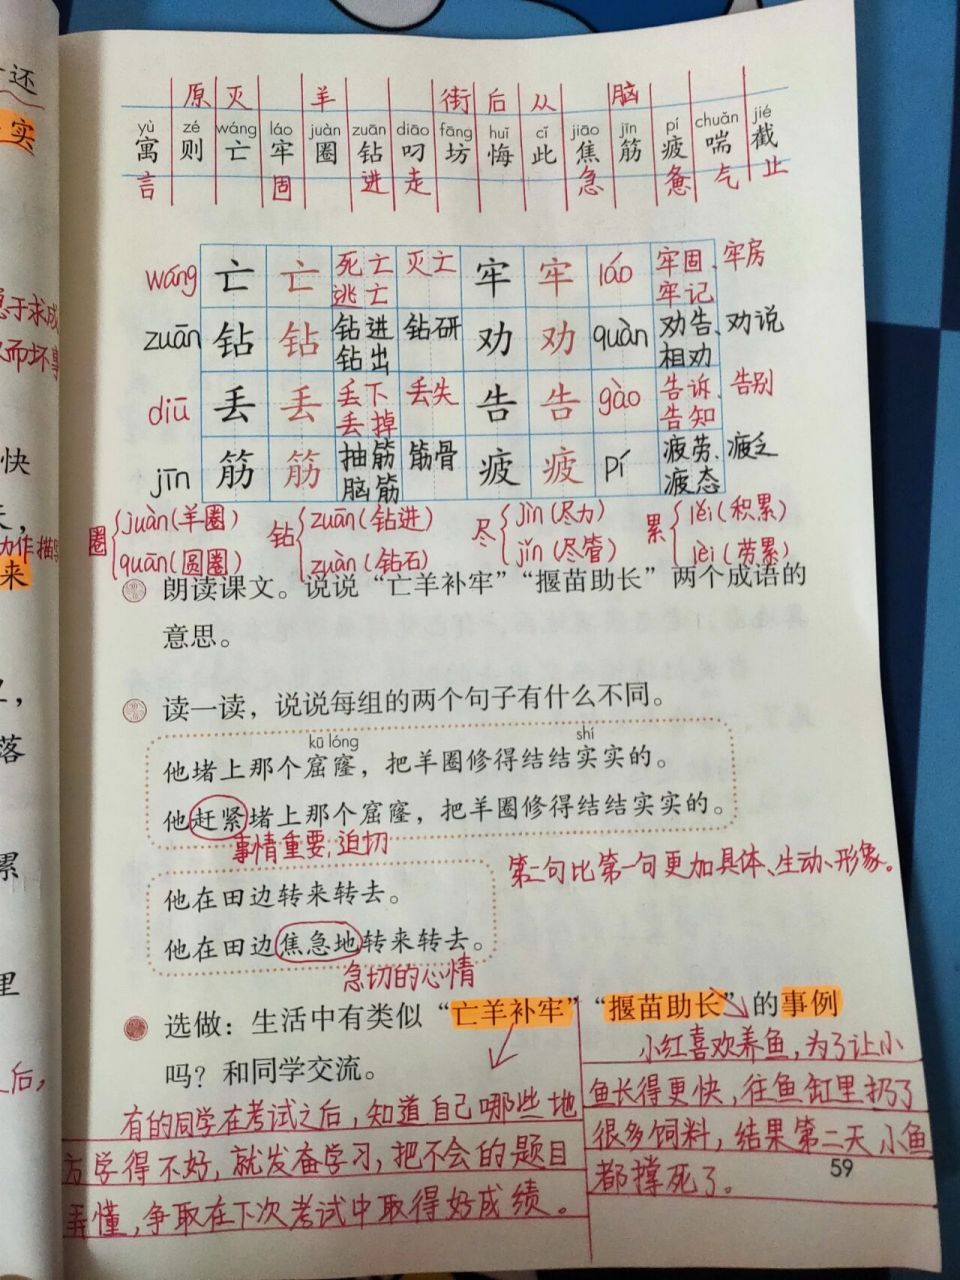 还
实
原 灭 羊 街 后 从 脑
yù zé wáng láo juàn zuān diāo fāng huǐ cǐ jiāo jīn pí chuǎn jié
寓 则 亡 牢 圈 钻 叼 坊 悔 此 焦 筋 疲 喘 截
言 固 进 走 急 惫 气 止
wáng 亡 亡 死亡 灭亡 逃亡 牢 牢 láo 牢固、牢房 牢记
zuān 钻 钻 钻进 钻研 钻出 劝 劝 quàn 劝告、劝说 相劝
diū 丢 丢 丢下 丢失 丢掉 告 告 gào 告诉、告别 告知
jīn 筋 筋 抽筋 筋骨 脑筋 疲 疲 pí 疲劳、疲乏 疲态
圈 juàn(羊圈) quān(圆圈) 钻 zuān(钻进) zuàn(钻石) 尽 jìn(尽力) jǐn(尽管) 累 lěi(积累) lèi(劳累)
朗读课文。说说“亡羊补牢”“揠苗助长”两个成语的
意思。
读一读，说说每组的两个句子有什么不同。
kū lóng shí
他堵上那个窟窿，把羊圈修得结结实实的。
他赶紧堵上那个窟窿，把羊圈修得结结实实的。
事情重要，迫切
第二句比第一句更加具体、生动、形象。
他在田边转来转去。
他在田边焦急地转来转去。
急切的心情
选做：生活中有类似“亡羊补牢”“揠苗助长”的事例
吗？和同学交流。
有的同学在考试之后，知道自己哪些地
方学得不好，就发奋学习，把不会的题目
弄懂，争取在下次考试中取得好成绩。
小红喜欢养鱼，为了让小
鱼长得更快，往鱼缸里扔了
很多饲料，结果第二天小鱼
都撑死了。
59
于求成
而坏事
快
作描写
来
落
累
里
后，